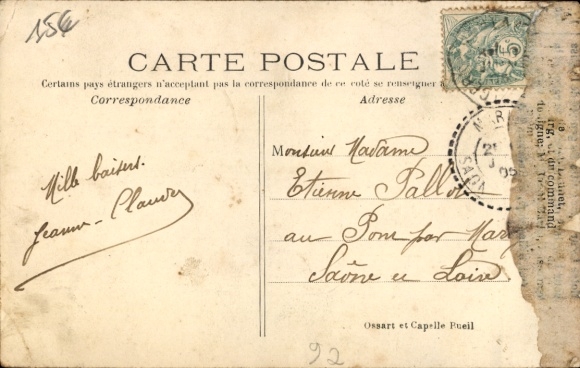 15€
CARTE POSTALE
Certains pays étrangers n'acceptant pas la correspondance de ce coté se renseigner à
Correspondance
Adresse
Mille baisers.
Jeanne-Claudey
Monsieur Madame
Etienne Pallot
au Pont par Mary
Saône et Loire
Ossart et Capelle Rueil
92